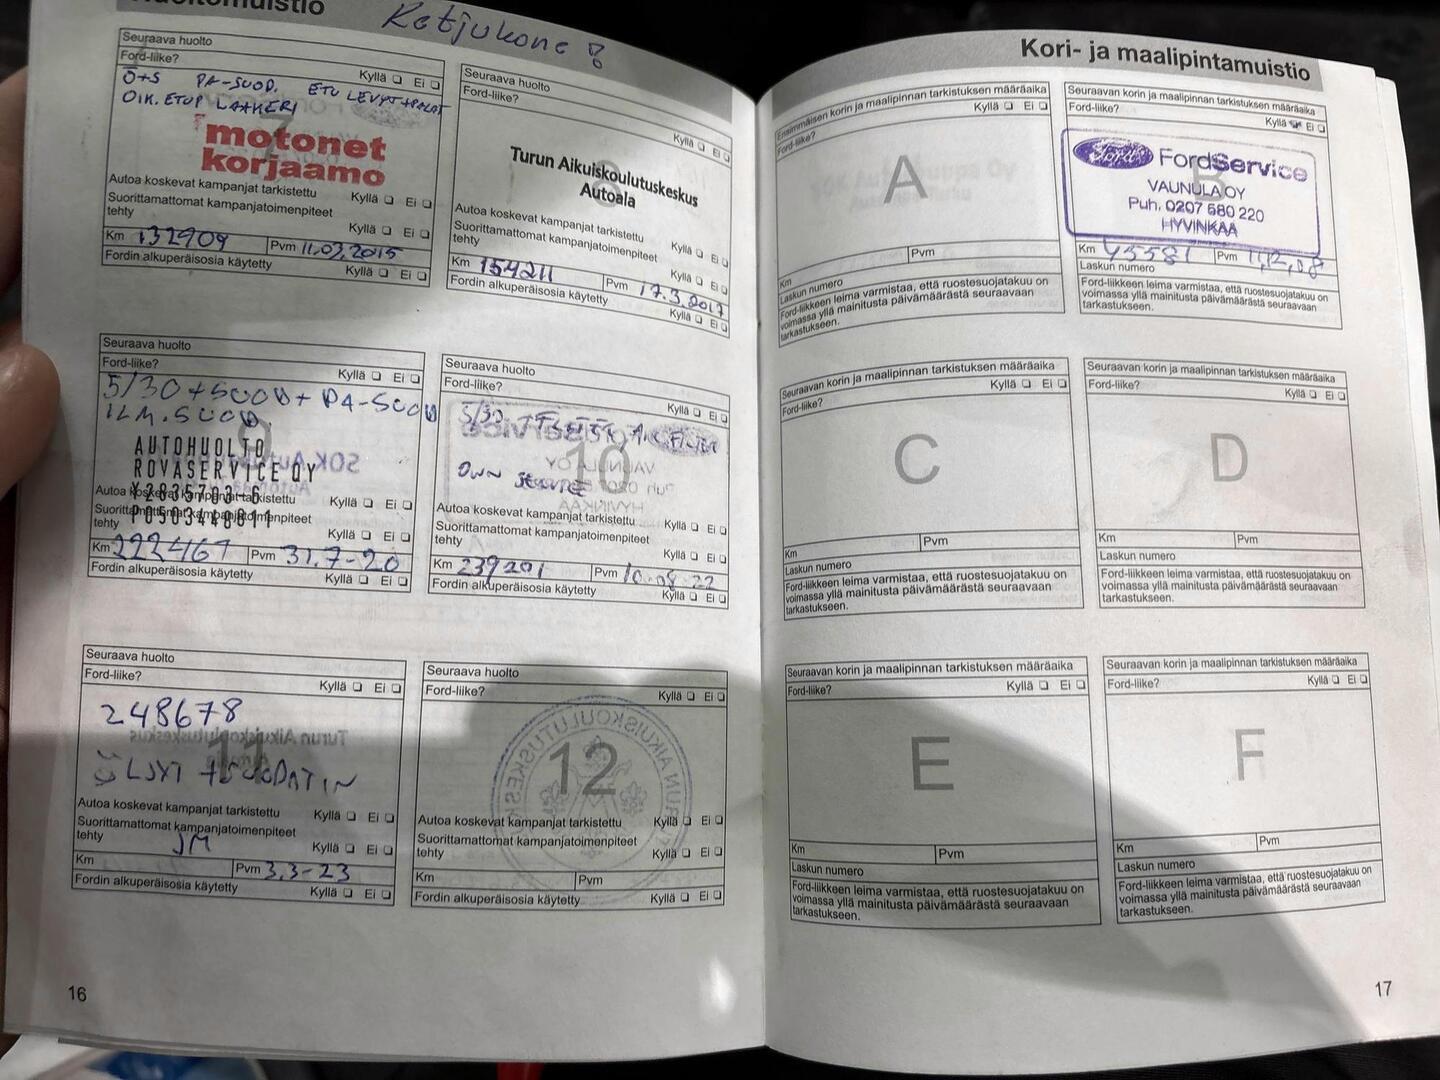 Huoltomuistio
Ketjukone !
Seuraava huolto
Ford-liike?
Kyllä ❑ Ei ❑
Ö+S PA-SUOD. ETU LEVYT+PALAT
OIK. ETUP LAAKERI
7
motonet
korjaamo
Autoa koskevat kampanjat tarkistettu
Kyllä ❑ Ei ❑
Suorittamattomat kampanjatoimenpiteet
tehty
Kyllä ❑ Ei ❑
Km 132909 Pvm 11.03.2015
Fordin alkuperäisosia käytetty
Kyllä ❑ Ei ❑
Seuraava huolto
Ford-liike?
Kyllä ❑ Ei ❑
8
Turun Aikuiskoulutuskeskus
Autoala
Autoa koskevat kampanjat tarkistettu
Kyllä ❑ Ei ❑
Suorittamattomat kampanjatoimenpiteet
tehty
Kyllä ❑ Ei ❑
Km 154211 Pvm 17.3.2017
Fordin alkuperäisosia käytetty
Kyllä ❑ Ei ❑
Seuraava huolto
Ford-liike?
Kyllä ❑ Ei ❑
5/30+SUOD+PA-SUOD
ILM.SUOD.
9
AUTOHUOLTO
ROVASERVICE OY
Y2835703-6
P0503448811
Autoa koskevat kampanjat tarkistettu
Kyllä ❑ Ei ❑
Suorittamattomat kampanjatoimenpiteet
tehty
Kyllä ❑ Ei ❑
Km 222467 Pvm 31.7-20
Fordin alkuperäisosia käytetty
Kyllä ❑ Ei ❑
Seuraava huolto
Ford-liike?
Kyllä ❑ Ei ❑
5/30 + FILTER, AIR FILTER
10
OWN SERVICE
Autoa koskevat kampanjat tarkistettu
Kyllä ❑ Ei ❑
Suorittamattomat kampanjatoimenpiteet
tehty
Kyllä ❑ Ei ❑
Km 239201 Pvm 10-08-22
Fordin alkuperäisosia käytetty
Kyllä ❑ Ei ❑
Seuraava huolto
Ford-liike?
Kyllä ❑ Ei ❑
248678
11
ÖLJYT + SUODATIN
Autoa koskevat kampanjat tarkistettu
Kyllä ❑ Ei ❑
Suorittamattomat kampanjatoimenpiteet
tehty
JM
Kyllä ❑ Ei ❑
Km Pvm 3.3-23
Fordin alkuperäisosia käytetty
Kyllä ❑ Ei ❑
Seuraava huolto
Ford-liike?
Kyllä ❑ Ei ❑
12
Autoa koskevat kampanjat tarkistettu
Kyllä ❑ Ei ❑
Suorittamattomat kampanjatoimenpiteet
tehty
Kyllä ❑ Ei ❑
Km Pvm
Fordin alkuperäisosia käytetty
Kyllä ❑ Ei ❑
16
Kori- ja maalipintamuistio
Ensimmäisen korin ja maalipinnan tarkistuksen määräaika
Ford-liike?
Kyllä ❑ Ei ❑
A
Km Pvm
Laskun numero
Ford-liikkeen leima varmistaa, että ruostesuojatakuu on
voimassa yllä mainitusta päivämäärästä seuraavaan
tarkastukseen.
Seuraavan korin ja maalipinnan tarkistuksen määräaika
Ford-liike?
Kyllä ❑ Ei ❑
B
Ford FordService
VAUNULA OY
Puh. 0207 680 220
HYVINKÄÄ
Km 45581 Pvm 11,12,08
Laskun numero
Ford-liikkeen leima varmistaa, että ruostesuojatakuu on
voimassa yllä mainitusta päivämäärästä seuraavaan
tarkastukseen.
Seuraavan korin ja maalipinnan tarkistuksen määräaika
Ford-liike?
Kyllä ❑ Ei ❑
C
Km Pvm
Laskun numero
Ford-liikkeen leima varmistaa, että ruostesuojatakuu on
voimassa yllä mainitusta päivämäärästä seuraavaan
tarkastukseen.
Seuraavan korin ja maalipinnan tarkistuksen määräaika
Ford-liike?
Kyllä ❑ Ei ❑
D
Km Pvm
Laskun numero
Ford-liikkeen leima varmistaa, että ruostesuojatakuu on
voimassa yllä mainitusta päivämäärästä seuraavaan
tarkastukseen.
Seuraavan korin ja maalipinnan tarkistuksen määräaika
Ford-liike?
Kyllä ❑ Ei ❑
E
Km Pvm
Laskun numero
Ford-liikkeen leima varmistaa, että ruostesuojatakuu on
voimassa yllä mainitusta päivämäärästä seuraavaan
tarkastukseen.
Seuraavan korin ja maalipinnan tarkistuksen määräaika
Ford-liike?
Kyllä ❑ Ei ❑
F
Km Pvm
Laskun numero
Ford-liikkeen leima varmistaa, että ruostesuojatakuu on
voimassa yllä mainitusta päivämäärästä seuraavaan
tarkastukseen.
17